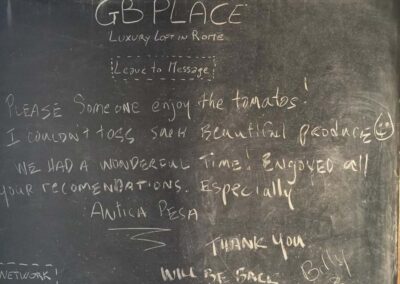 GB PLACE
LUXURY LOFT IN ROME
Leave to Message
PLEASE Someone enjoy the tomatos!
I couldn't toss such Beautiful produce
WE HAD A WONDERFUL Time! Engoyed all
your recomendations. Especially
ANTICA PESA
THANK YOU
WILL BE BACK
Billy
NETWORK!